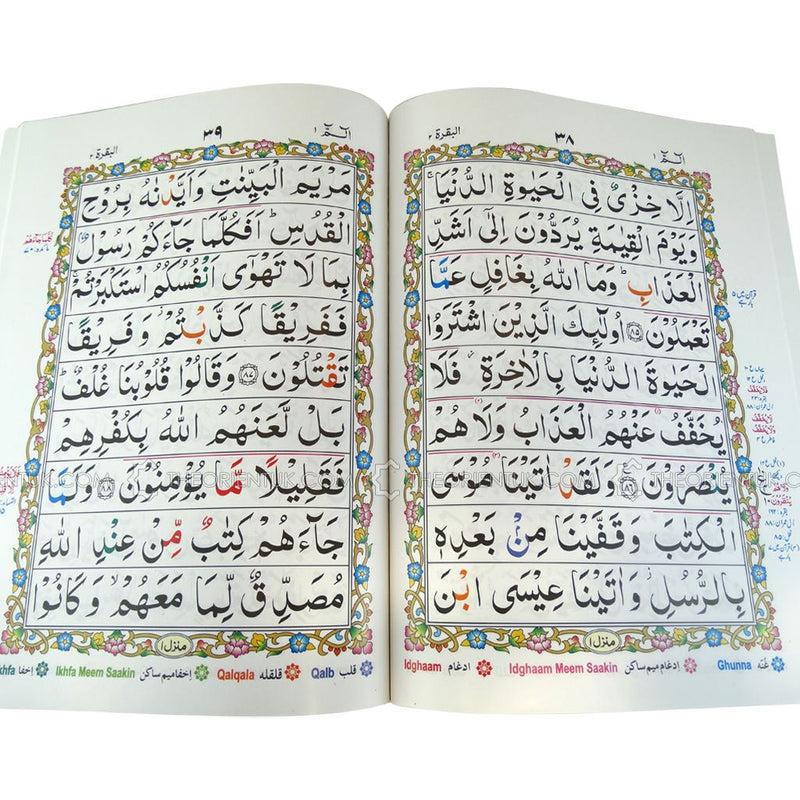 الٓمّٓ ١
٣٨
البقرة ٢
اِلَّا خِزْیٌ فِی الْحَیٰوةِ الدُّنْیَا ۚ
وَیَوْمَ الْقِیٰمَةِ یُرَدُّوْنَ اِلٰۤی اَشَدِّ
الْعَذَابِ ؕ وَمَا اللّٰهُ بِغَافِلٍ عَمَّا
تَعْمَلُوْنَ ﴿٨٥﴾ اُولٰٓئِكَ الَّذِیْنَ اشْتَرَوُا
الْحَیٰوةَ الدُّنْیَا بِالْاٰخِرَةِ ۫ فَلَا
یُخَفَّفُ عَنْهُمُ الْعَذَابُ وَلَا هُمْ
یُنْصَرُوْنَ ﴿٨٦﴾ وَلَقَدْ اٰتَیْنَا مُوْسَی
الْكِتٰبَ وَقَفَّیْنَا مِنْۢ بَعْدِهٖ
بِالرُّسُلِ ؗ وَاٰتَیْنَا عِیْسَی ابْنَ
منزل ١
Idghaam ادغام Idghaam Meem Saakin ادغام میم ساکن Ghunna غنّہ
الٓمّٓ ١
٣٩
البقرة ٢
مَرْیَمَ الْبَیِّنٰتِ وَاَیَّدْنٰهُ بِرُوْحِ
الْقُدُسِ ؕ اَفَكُلَّمَا جَآءَكُمْ رَسُوْلٌۢ
بِمَا لَا تَهْوٰۤی اَنْفُسُكُمُ اسْتَكْبَرْتُمْ ۚ
فَفَرِیْقًا كَذَّبْتُمْ ؗ وَفَرِیْقًا
تَقْتُلُوْنَ ﴿٨٧﴾ وَقَالُوْا قُلُوْبُنَا غُلْفٌ ؕ
بَلْ لَّعَنَهُمُ اللّٰهُ بِكُفْرِهِمْ
فَقَلِیْلًا مَّا یُؤْمِنُوْنَ ﴿٨٨﴾ وَلَمَّا
جَآءَهُمْ كِتٰبٌ مِّنْ عِنْدِ اللّٰهِ
مُصَدِّقٌ لِّمَا مَعَهُمْ ۙ وَكَانُوْا
منزل ١
Ikhfa اخفا Ikhfa Meem Saakin اخفا میم ساکن Qalqala قلقله Qalb قلب
THEORIENTIK.COM THEORIENTIK.COM